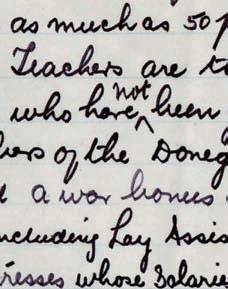 as much as 50 p
Teachers are to
who have not been
hers of the Doneg
a war bonus
including Lay Assis
resses whose Salarie